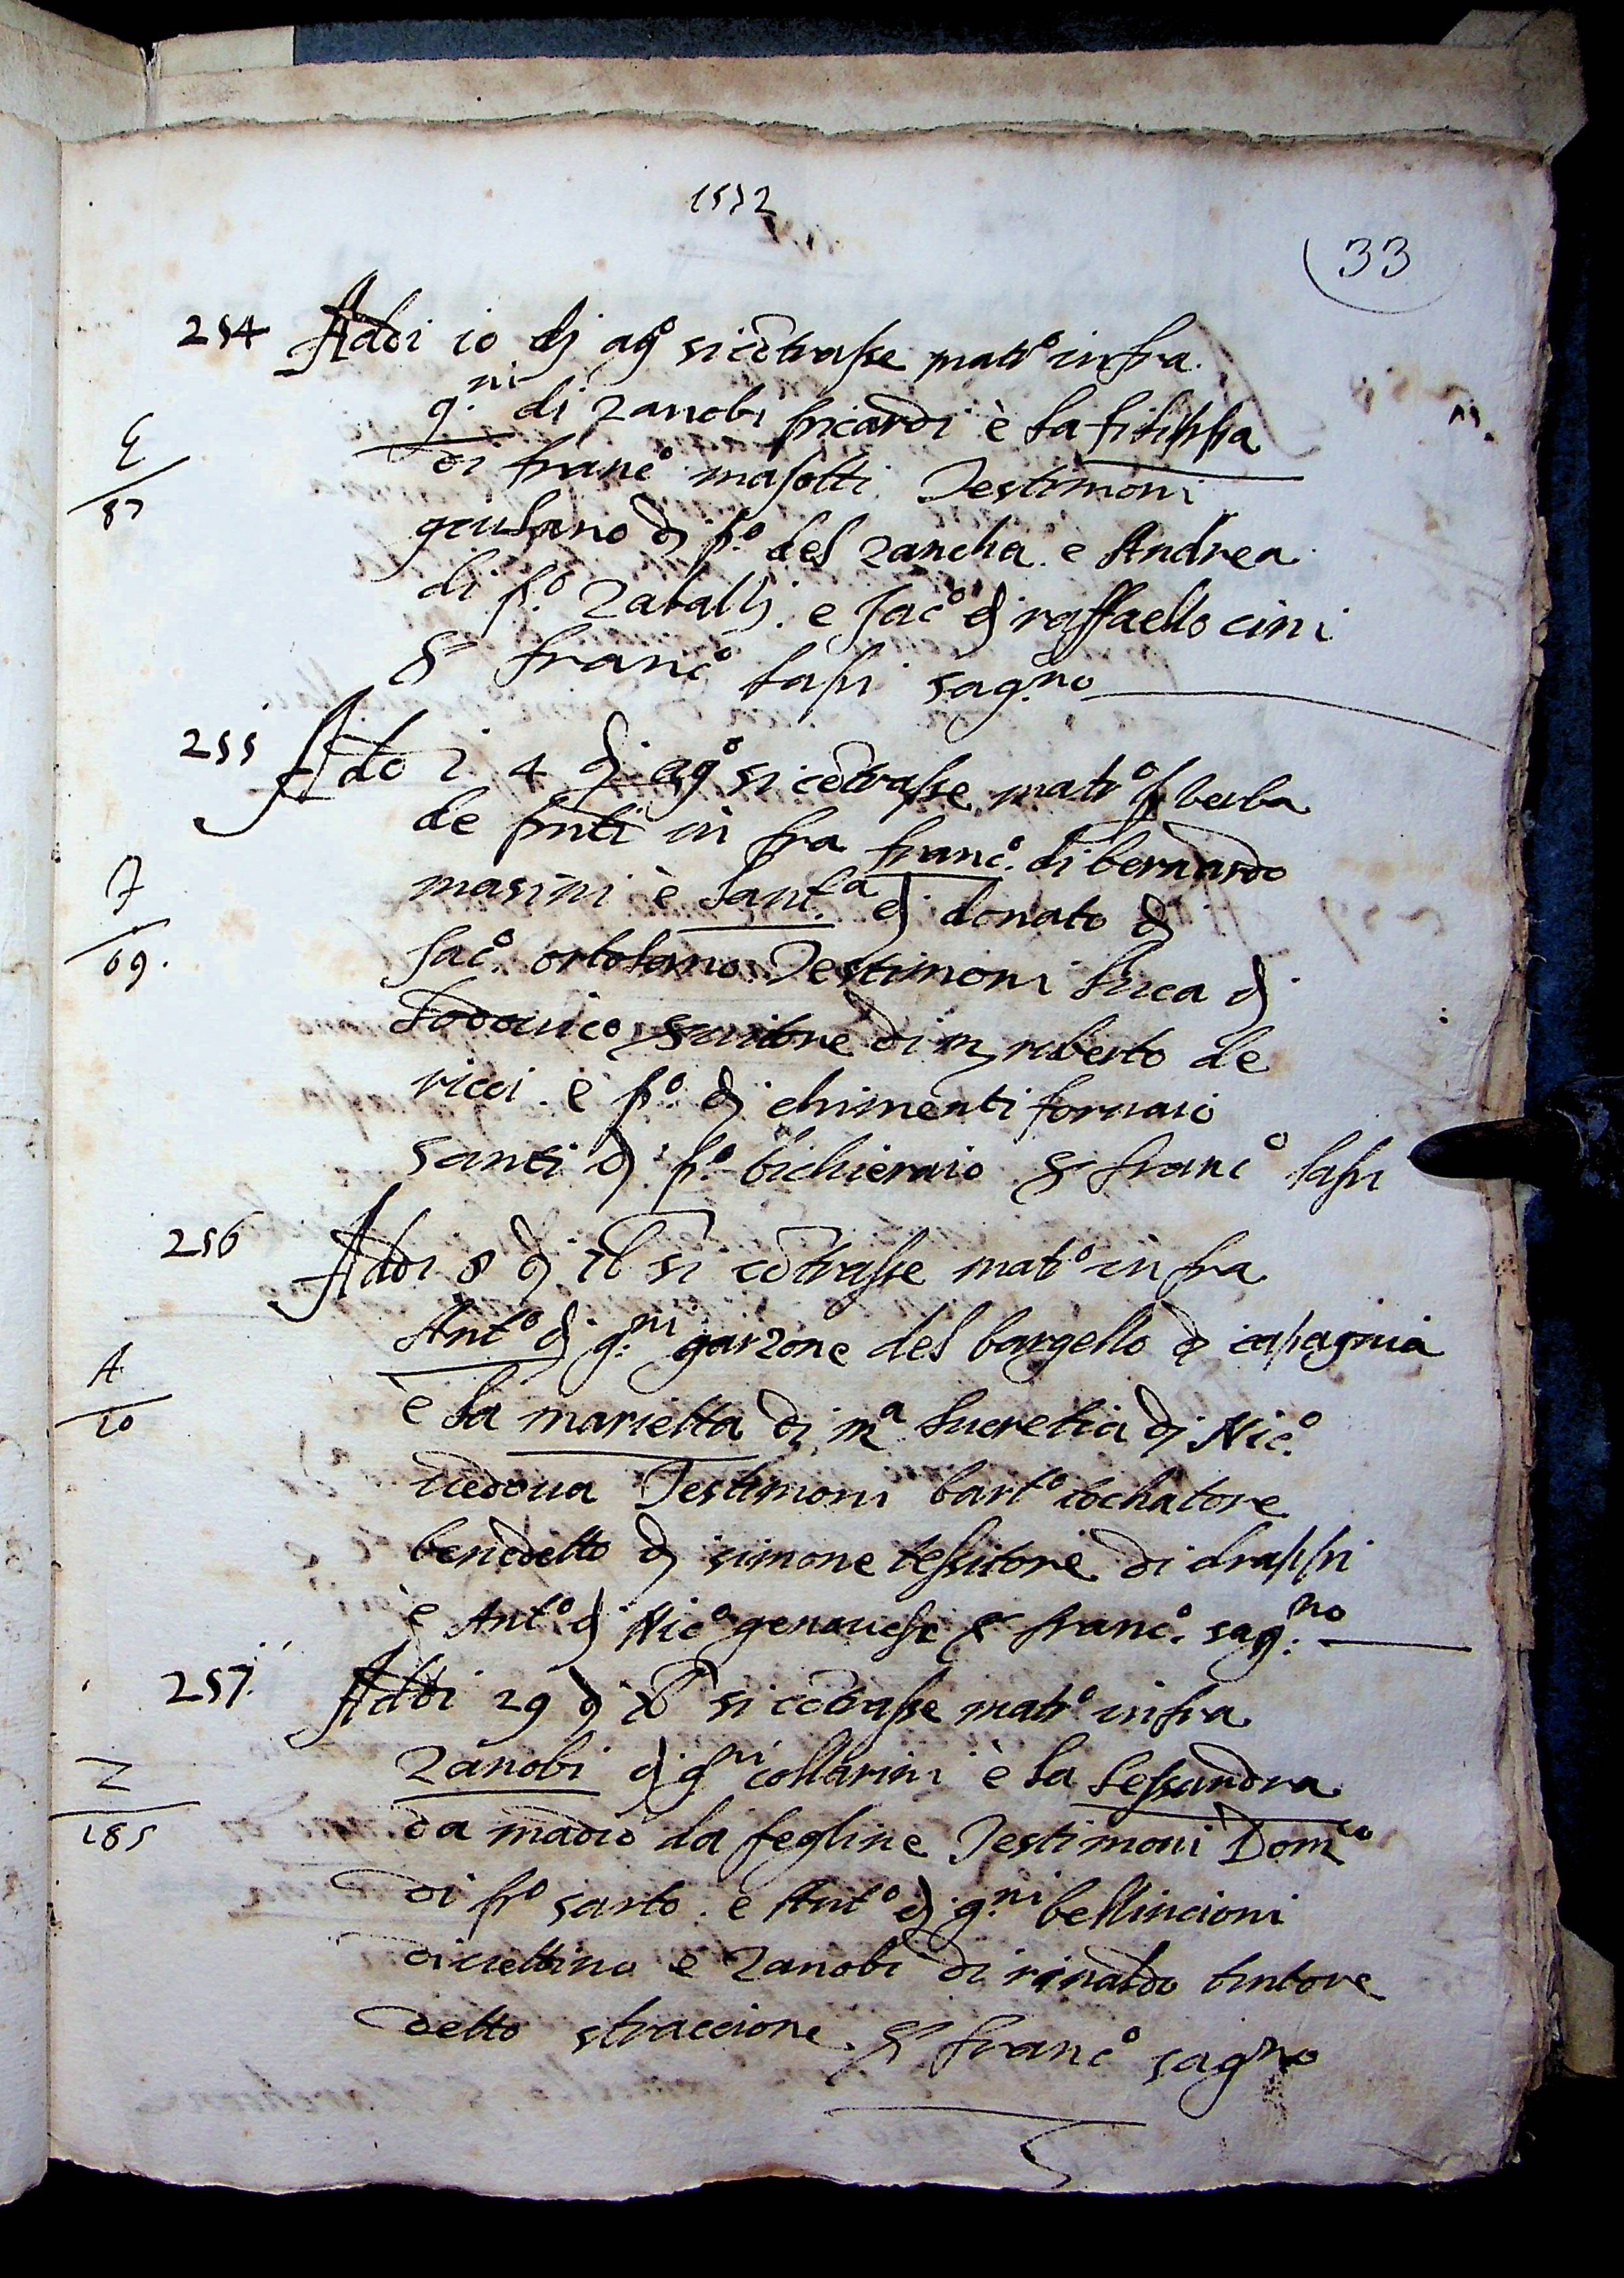 1572
33
254 Addi 10 dj agº si cōtrasse matrº infra
g.ni di Zanobi picardi è la filippa
di francº masotti Testimoni
G
87
giuliano dj pº del zancha e Andrea
di pº Zaballj e Jacº dj raffaello cini
francº lapi sag.no
255 Addi 4 dj agº si cōtrasse matrº verba
de pnti in fra francº di bernardo
masini è Sant.a dj donato dj
F
69.
Jacº ortolano Testimoni luca dj
Lodovico servitore di m ruberto de
ricci e pº dj chimenti fornaio
santi dj pº bichieraio francº lapi
256 Addi 8 dj si cōtrasse matº in fra
Antº dj g.ni garzone del bargello di cāpagnia
A
10
è la marietta di mª Lucretia dj Nicº
vedova Testimoni bartº tochatore
benedetto dj simone tessitore di drappi
è Antº dj Nicº genovese francº sag.no
257. Addi 29 dj si cōtrasse matrº infra
Zanobi dj g.ni collarini è la Lessandra
Z
185
da madio da feghine Testimoni Dom.co
di pº sarto e Antº dj g.ni bellincioni
vettino e Zanobi di rinaldo tintore
detto straccione francº sagno